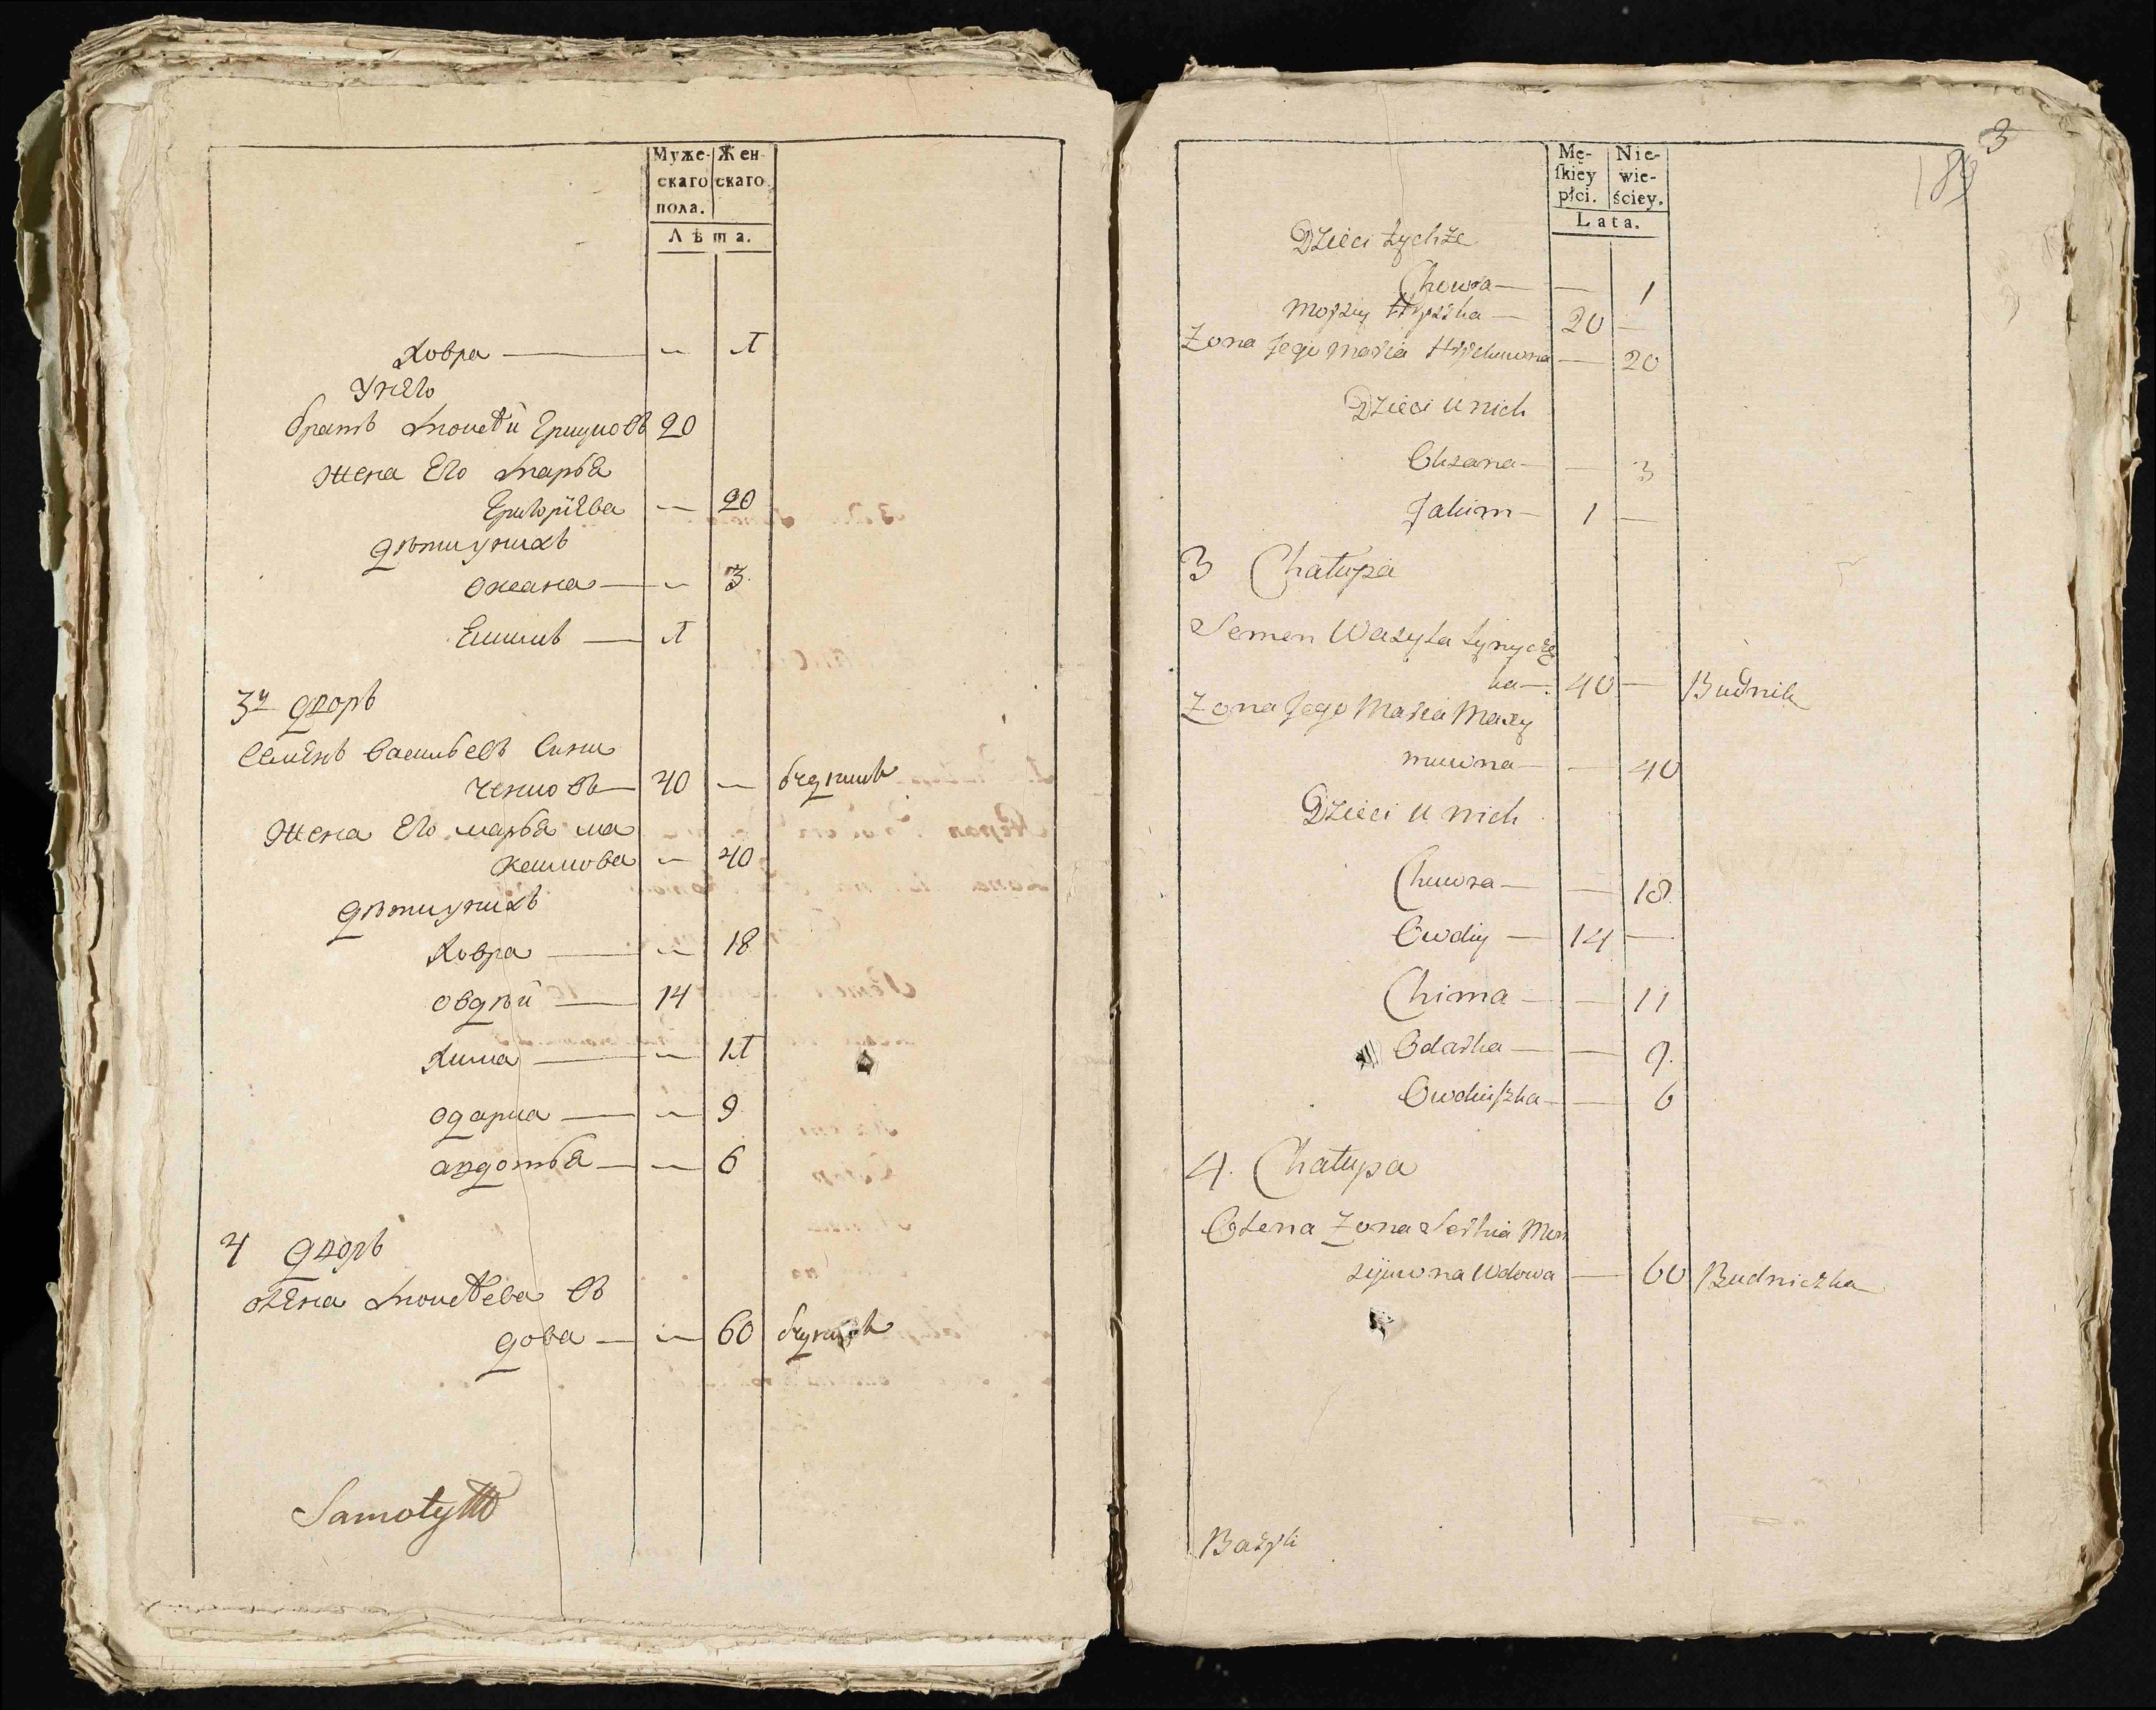 Муже- Жен-
скаго скаго
пола.
Лѣта.
Ховра — — 1
У него
братъ Моисей Грицковъ 20
жена Его Марья
Григоріева — 20
дѣти у нихъ
Оксана — — 3
Екимъ — 1
3й дворъ
Семенъ Васильевъ Сини
ченковъ — 40 — будникъ
жена Его марья ма
ксимова — 40
дѣти у нихъ
Ховра — — 18
Овдѣй — 14
Хима — — 11
Одарка — — 9
авдотья — — 6
4 дворъ
Олена Моисеева в
дова — — 60
Samoty
3
189
Mę- Nie-
ſkiey wie-
płci. ściey.
Lata.
Dzieci tychże
Chowra — — 1
Moyżiy Hryszka — 20 —
Zona Jego Maria Hryckuwna — 20
Dzieci u nich
Oksana — — 3
Jakim — 1 —
3 Chałupa
Semen Wasyla Synycze
ka — 40 — Budnik
Zona Jego Maria Maxy
muwna — — 40
Dzieci u nich
Chuwra — — 18
Owdiy — 14 —
Chima — — 11
Odarka — — 9.
Owdiuſzka — — 6
4. Chałupa
Olena Zona Serhia Moy
sijuwna Wdowa — 60 Budniczka